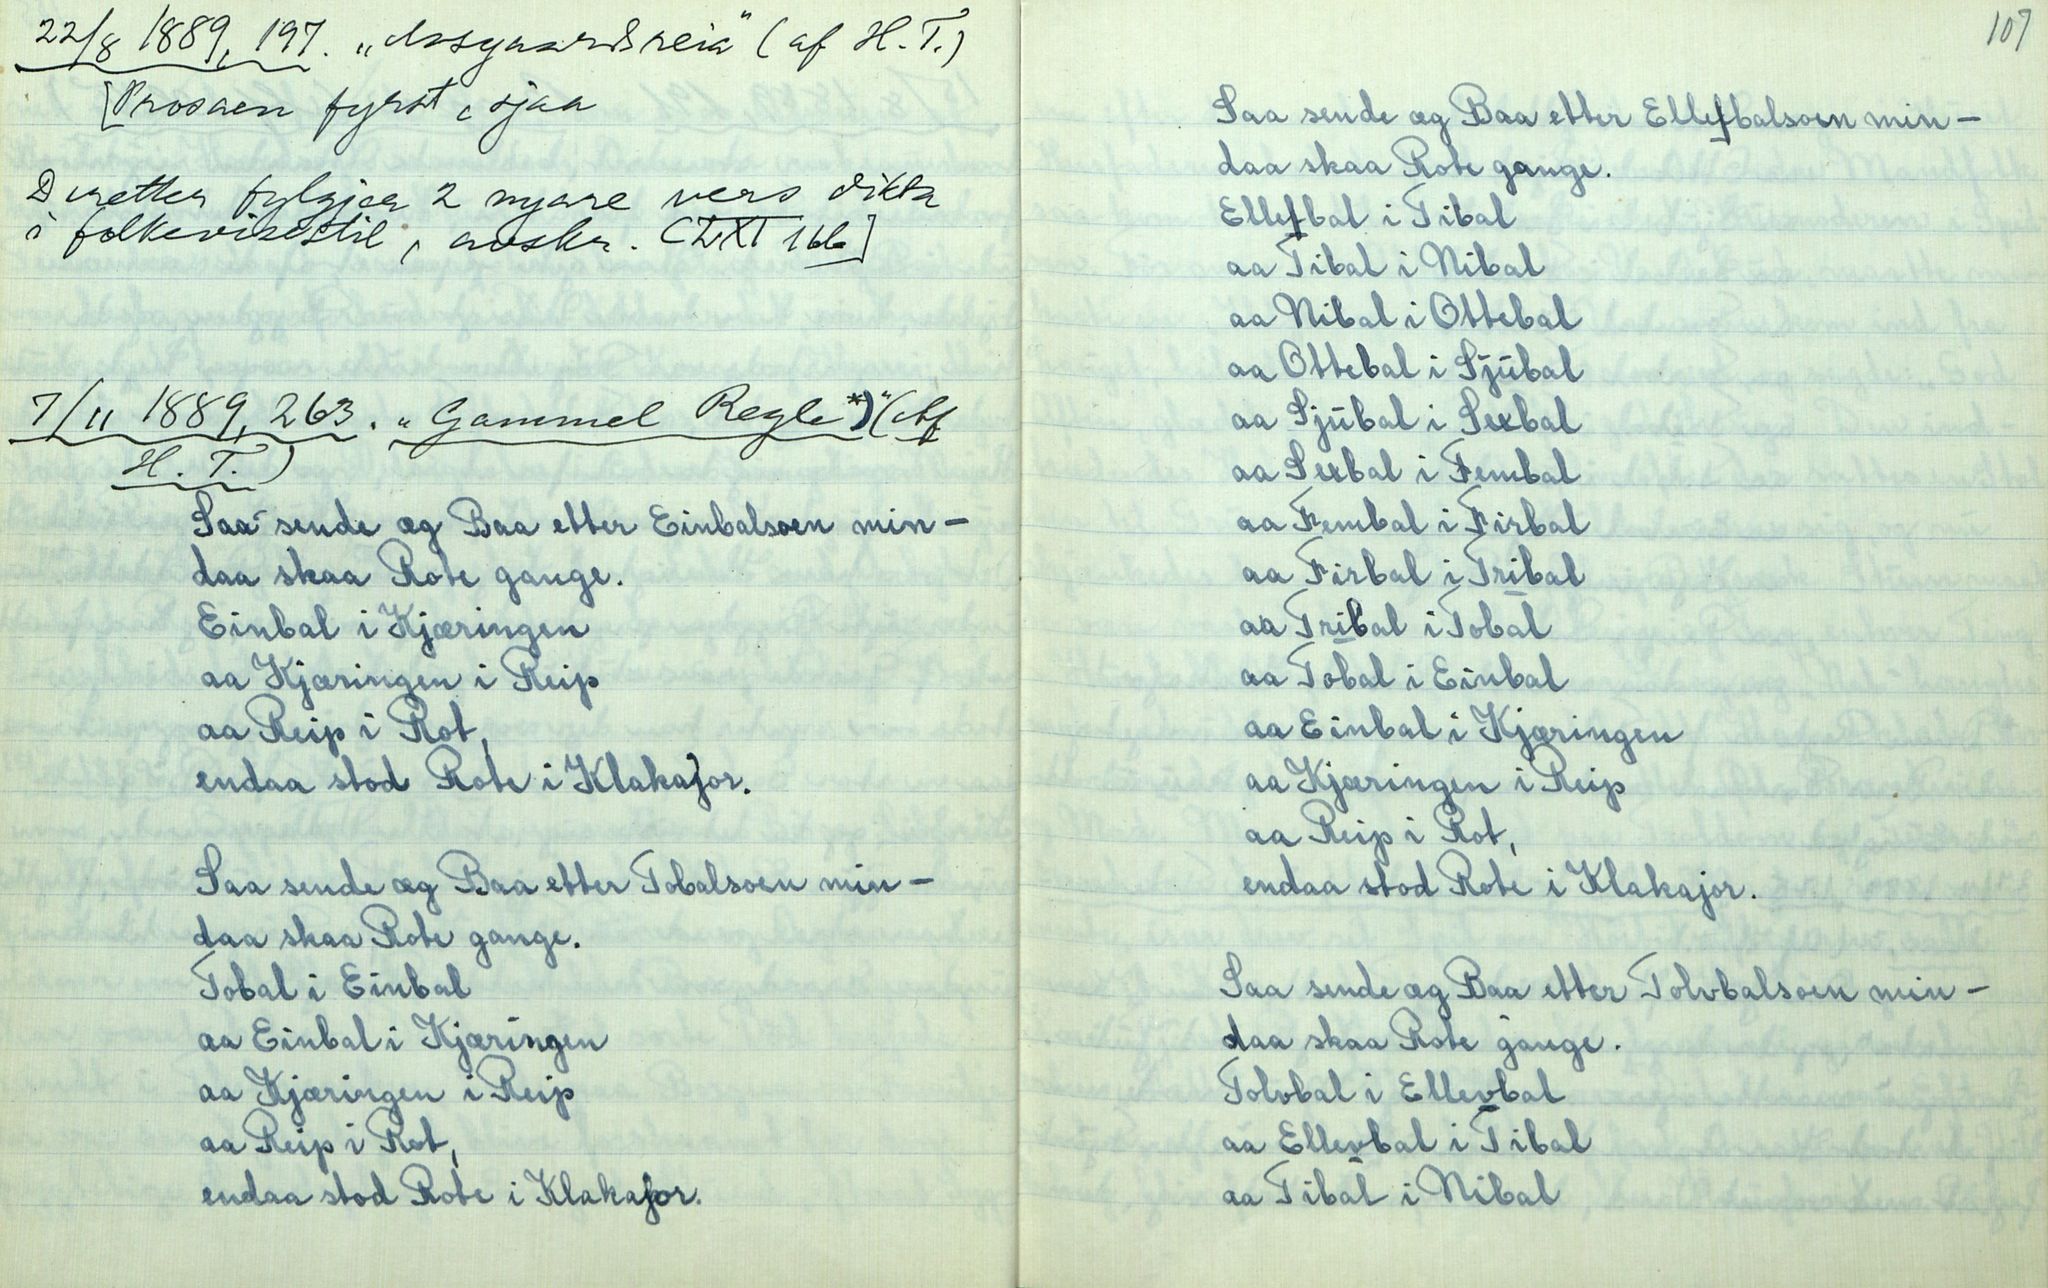 22/8 1889, 197. „Aasgaardsreia" (af H. T.)
[Prosaen fyrst, sjaa
Deretter fylgjer 2 nyare vers dikta
i folkevisestil, avskr. CLXII 166]
7/11 1889, 263. „Gammel Regle*)" (Af
H. T.)
Saa sende æg Baa etter Einbalsoen min —
daa skaa Rote gange.
Einbal i Kjæringen
aa Kjæringen i Reip
aa Reip i Rot,
endaa stod Rote i Klakajor.
Saa sende æg Baa etter Tobalsoen min —
daa skaa Rote gange.
Tobal i Einbal
aa Einbal i Kjæringen
aa Kjæringen i Reip
aa Reip i Rot,
endaa stod Rote i Klakajor.
107
Saa sende æg Baa etter Ellefbalsoen min —
daa skaa Rote gange.
Ellefbal i Tibal
aa Tibal i Nibal
aa Nibal i Ottebal
aa Ottebal i Sjūbal
aa Sjūbal i Sexbal
aa Sexbal i Fembal
aa Fembal i Firbal
aa Firbal i Tribal
aa Tribal i Tobal
aa Tobal i Einbal
aa Einbal i Kjæringen
aa Kjæringen i Reip
aa Reip i Rot,
endaa stod Rote i Klakajor.
Saa sende æg Baa etter Tolvbalsoen min —
daa skaa Rote gange.
Tolvbal i Ellevbal
aa Ellevbal i Tibal
aa Tibal i Nibal